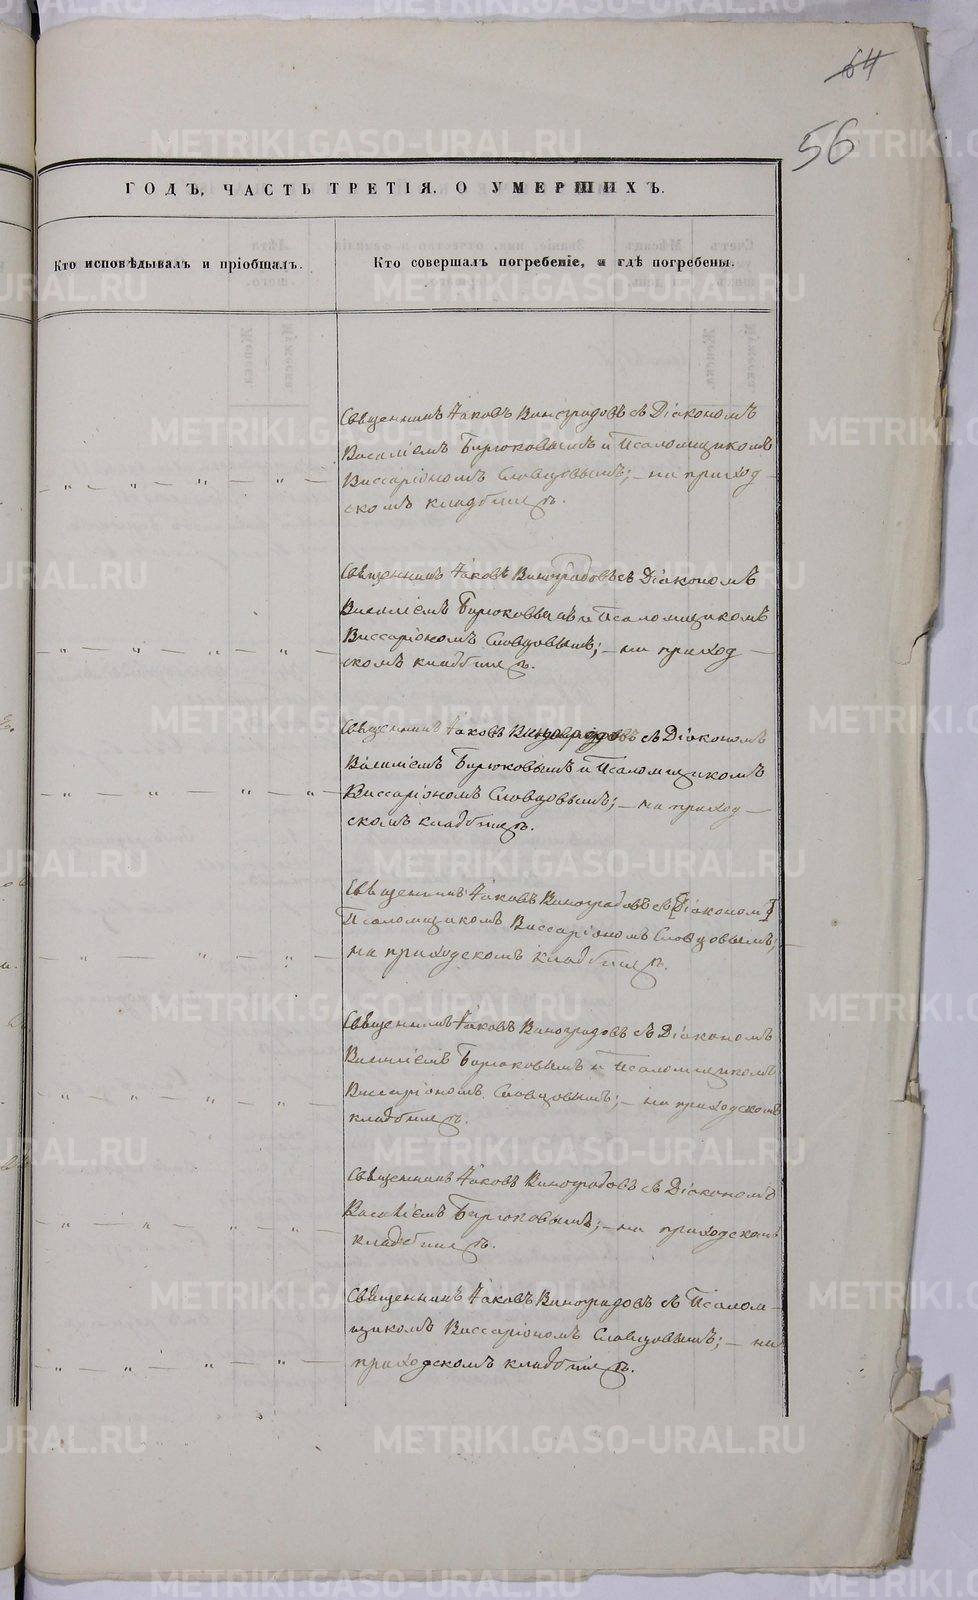 64
56
ГОДЪ, ЧАСТЬ ТРЕТІЯ, О УМЕРШИХЪ.
Кто исповѣдывалъ и пріобщалъ.
Кто совершалъ погребеніе, и гдѣ погребены.
Священникъ Іаковъ Виноградовъ съ Діакономъ
Василіемъ Бирюковымъ и Псаломщикомъ
Виссаріономъ Словцовымъ; — на приход-
— „ — „ — „ — „ —
скомъ кладбищѣ.
Священникъ Іаковъ Виноградовъ съ Діакономъ
Василіемъ Бирюковымъ и Псаломщикомъ
Виссаріономъ Словцовымъ; — на приход —
— „ — „ — „ — „ —
скомъ кладбищѣ.
Священникъ Іаковъ Виноградовъ съ Діакономъ
Василіемъ Бирюковымъ и Псаломщикомъ
Виссаріономъ Словцовымъ; — на приход —
— „ — „ — „ — „ —
скомъ кладбищѣ.
Священникъ Іаковъ Виноградовъ съ [Діакономъ]
Псаломщикомъ Виссаріономъ Словцовымъ; —
на приходскомъ кладбищѣ.
— „ — „ — „ — „ —
Священникъ Іаковъ Виноградовъ съ Діакономъ
Василіемъ Бирюковымъ и Псаломщикомъ
Виссаріономъ Словцовымъ; — на приходскомъ
— „ — „ — „ — „ —
кладбищѣ.
Священникъ Іаковъ Виноградовъ съ Діакономъ
Василіемъ Бирюковымъ; — на приходскомъ
— „ — „ — „ — „ —
кладбищѣ.
Священникъ Іаковъ Виноградовъ съ Псалом-
щикомъ Виссаріономъ Словцовымъ; — на
приходскомъ кладбищѣ.
— „ — „ — „ — „ —
METRIKI.GASO-URAL.RU